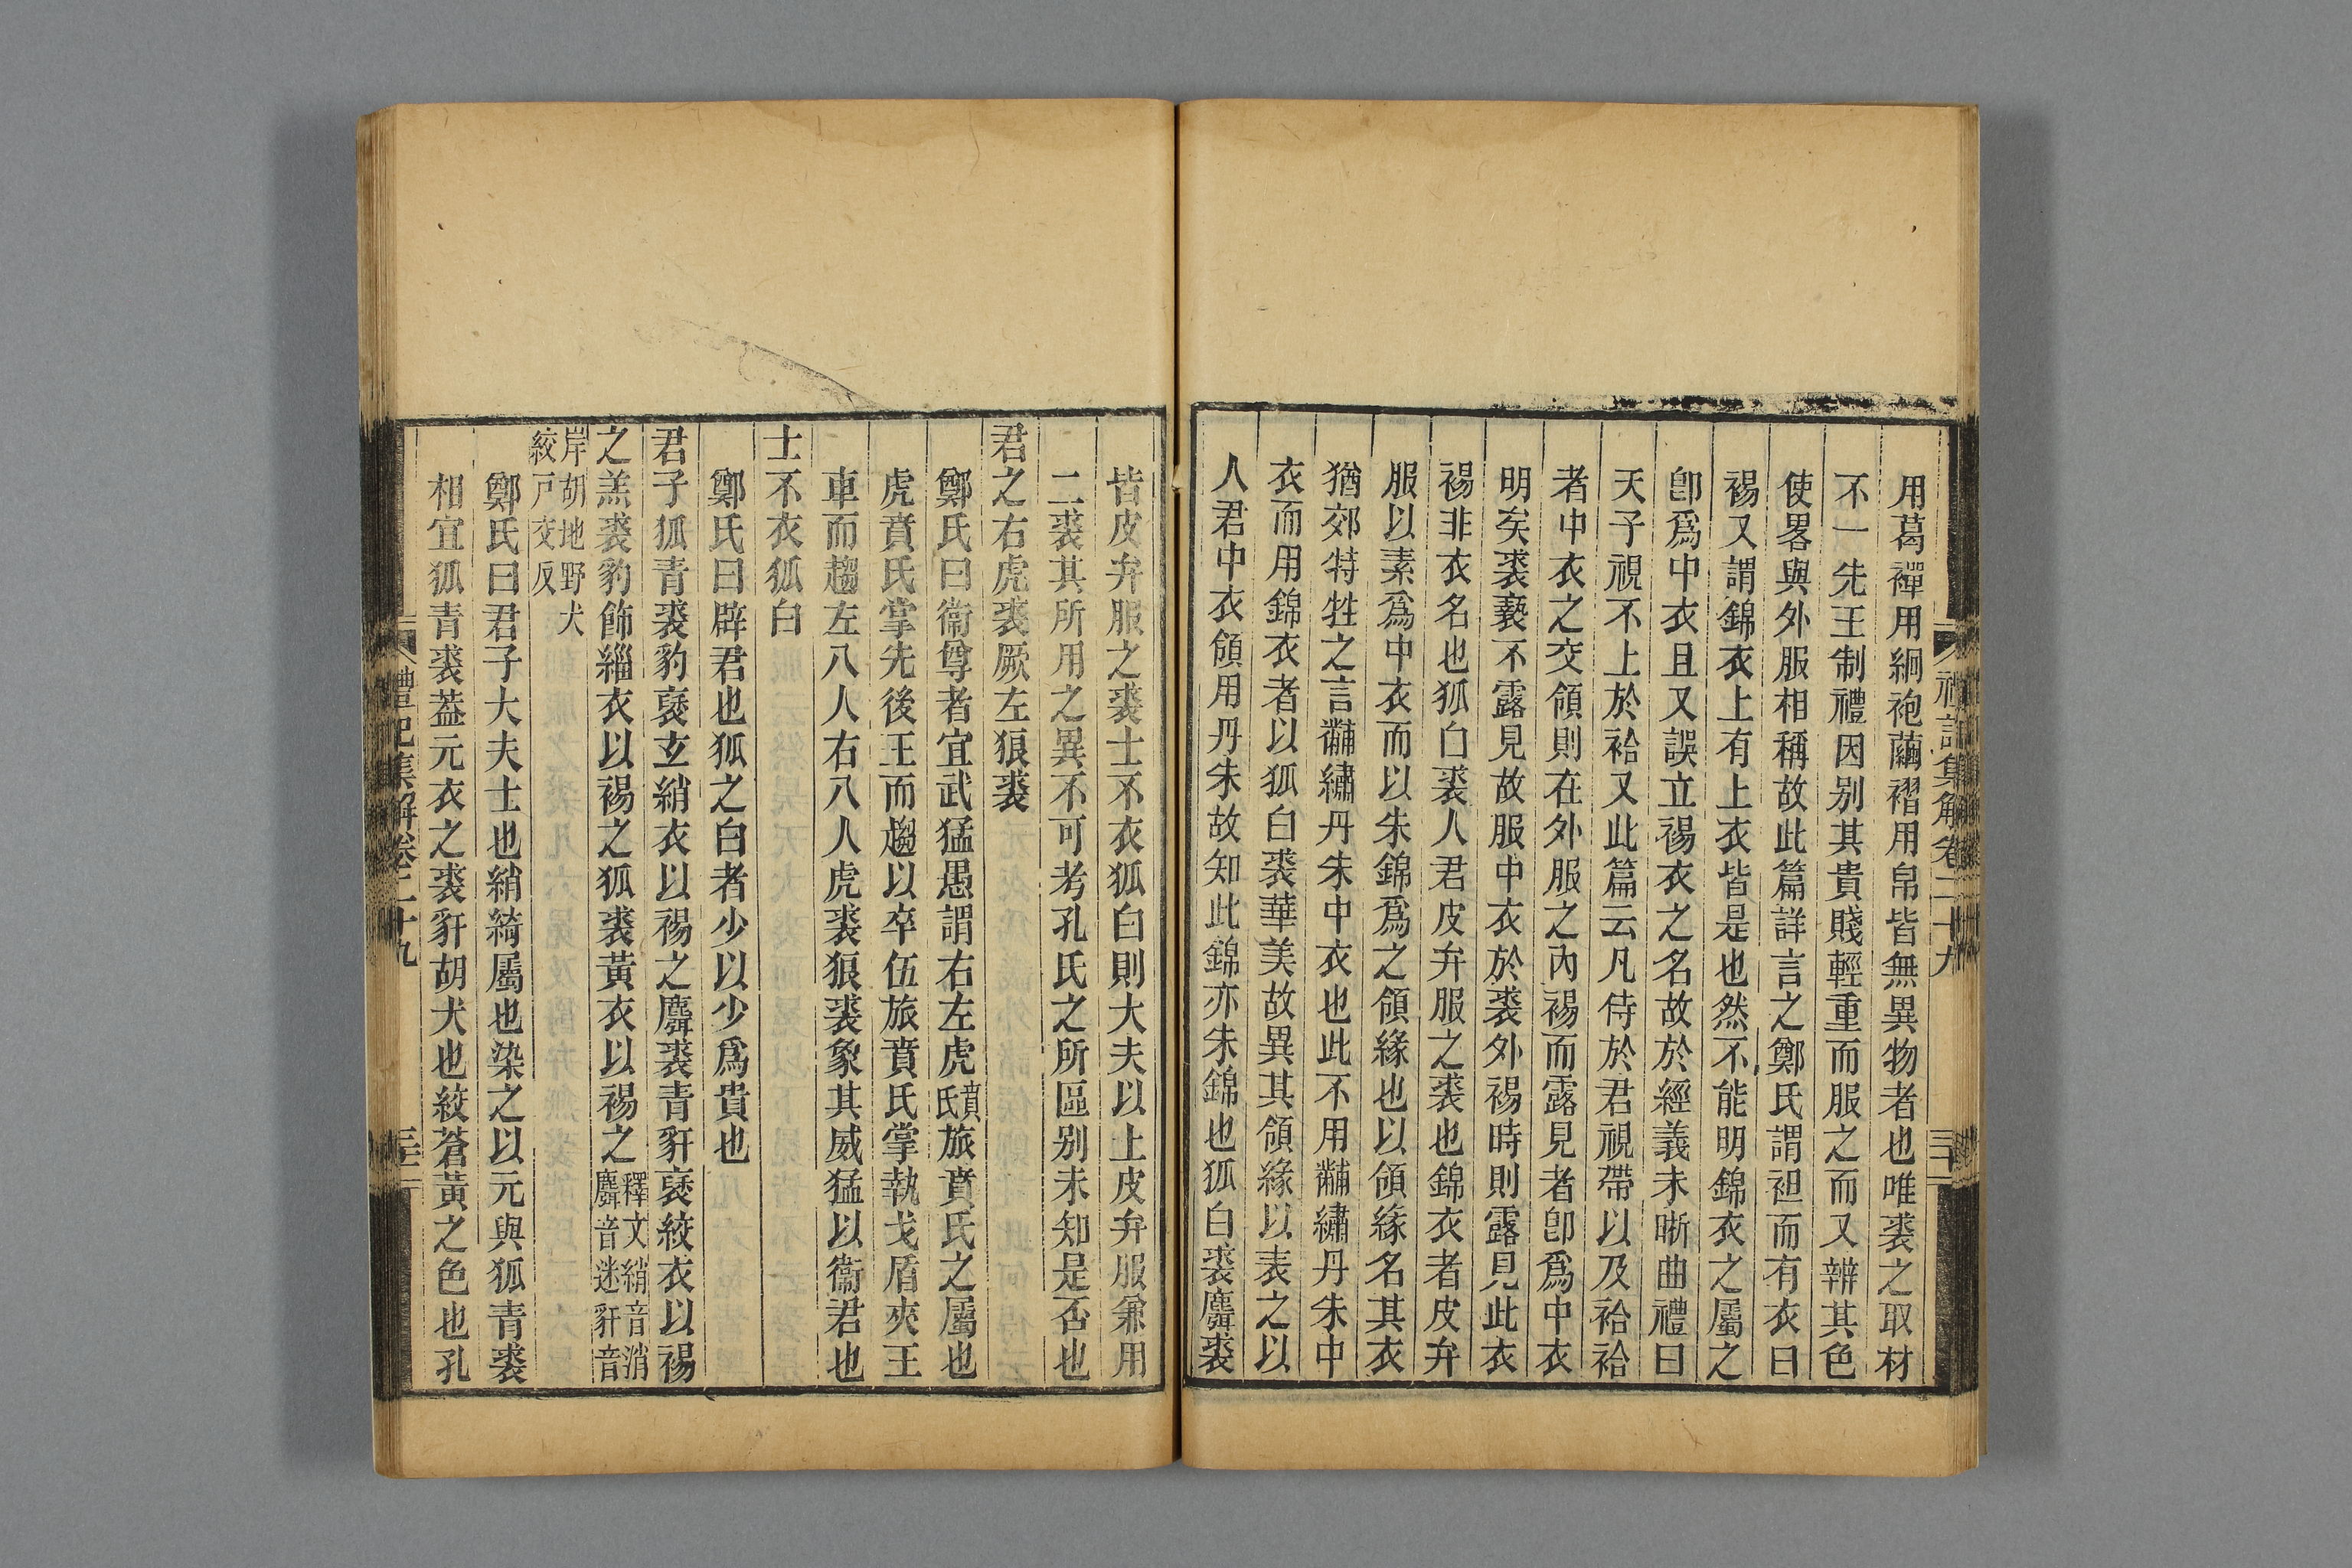 禮記集解卷二十九
三十一
用葛襌用絅袍繭褶用帛皆無異物者也唯裘之取材
不一先王制禮因别其貴賤輕重而服之而又辨其色
使畧與外服相稱故此篇詳言之鄭氏謂袒而有衣曰
裼又謂錦衣上有上衣皆是也然不能明錦衣之屬之
卽爲中衣且又誤立裼衣之名故於經義未晰曲禮曰
天子視不上於袷又此篇云凡侍於君視帶以及袷袷
者中衣之交領則在外服之內裼而露見者卽爲中衣
明矣裘褻不露見故服中衣於裘外裼時則露見此衣
裼非衣名也狐白裘人君皮弁服之裘也錦衣者皮弁
服以素爲中衣而以朱錦爲之領緣也以領緣名其衣
猶郊特牲之言黼繡丹朱中衣也此不用黼繡丹朱中
衣而用錦衣者以狐白裘華美故異其領緣以表之以
人君中衣領用丹朱故知此錦亦朱錦也狐白裘麛裘
皆皮弁服之裘士不衣狐白則大夫以上皮弁服兼用
二裘其所用之異不可考孔氏之所區别未知是否也
君之右虎裘厥左狼裘
鄭氏曰衞尊者宜武猛愚謂右左虎賁氏旅賁氏之屬也
虎賁氏掌先後王而趨以卒伍旅賁氏掌執戈盾夾王
車而趨左八人右八人虎裘狼裘象其威猛以衞君也
士不衣狐白
鄭氏曰辟君也狐之白者少以少爲貴也
君子狐青裘豹褎玄綃衣以裼之麛裘青豻褎絞衣以裼
之羔裘豹飾緇衣以裼之狐裘黃衣以裼之釋文綃音消麛音迷豻音
岸胡地野犬絞戸交反
鄭氏曰君子大夫士也綃綺屬也染之以元與狐青裘
相宜狐青裘葢元衣之裘豻胡犬也絞蒼黃之色也孔
禮記集解卷二十九